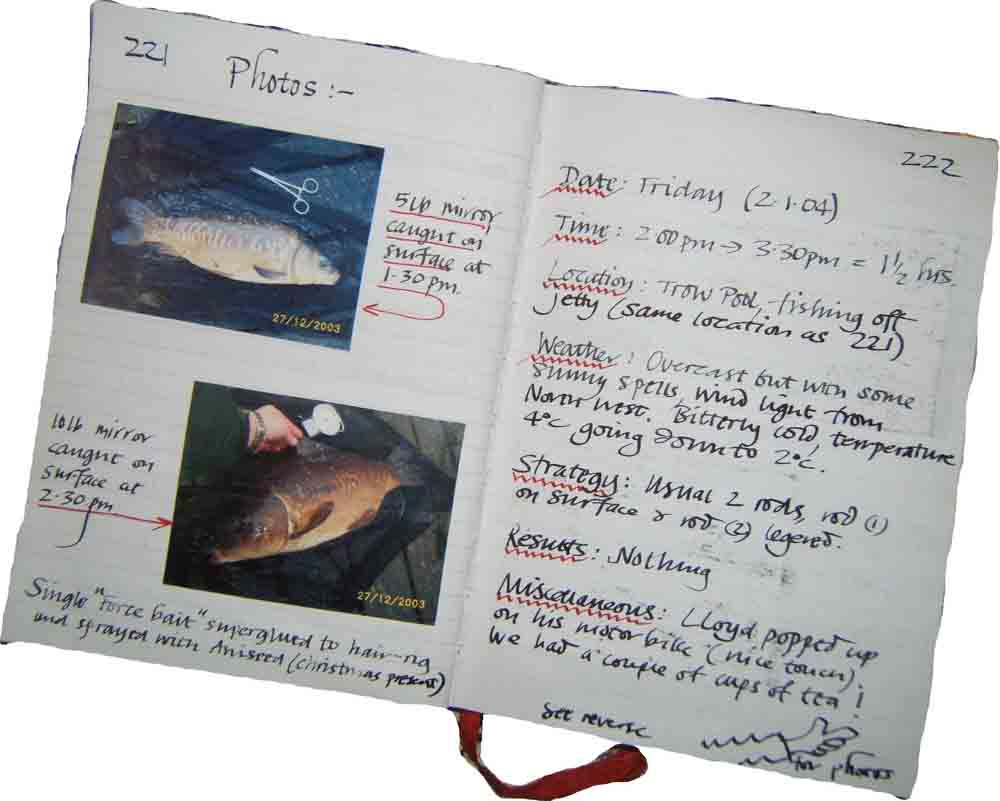 221
Photos :-
27/12/2003
5lb mirror
caught on
surface at
1.30 pm.
10lb mirror
caught on
surface at
2.30 pm
27/12/2003
Single "force bait" superglued to hair-rig
and sprayed with Aniseed (christmas present)
222
Date: Friday (2.1.04)
Time: 2.00pm → 3.30pm = 1½ hrs.
Location: Trow Pool, fishing off
jetty (same location as 221)
Weather: Overcast but with some
sunny spells, wind light from
North West. Bitterly cold, temperature
4°c going down to 2°c.
Strategy: Usual 2 rods, rod (1)
on surface & rod (2) legered.
Results: Nothing
Miscellaneous: Lloyd popped up
on his motor bike (nice touch),
we had a couple of cups of tea!
See reverse
for photos